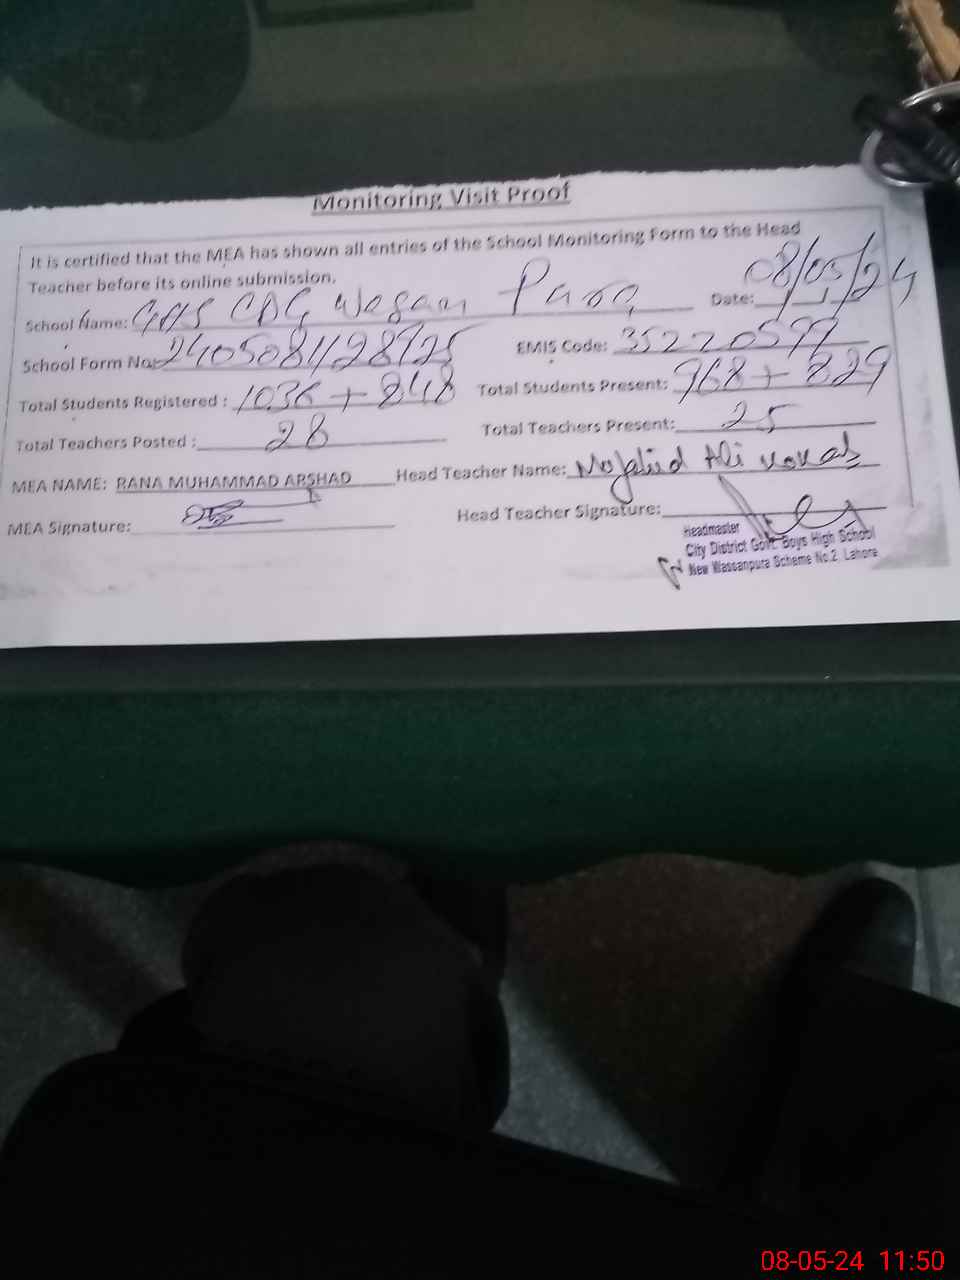 Monitoring Visit Proof
It is certified that the MEA has shown all entries of the School Monitoring Form to the Head
Teacher before its online submission.
School Name: GHS CDG Date: 08/05/24
School Form No: EMIS Code: 35220599
Total Students Registered : 1036 + 848 Total Students Present: 968 + 829
Total Teachers Posted : 28 Total Teachers Present: 25
MEA NAME: RANA MUHAMMAD ARSHAD Head Teacher Name: Ali
MEA Signature: Head Teacher Signature:
Headmaster
City District Govt. Boys High School
New Wassanpura Scheme No.2, Lahore
08-05-24 11:50